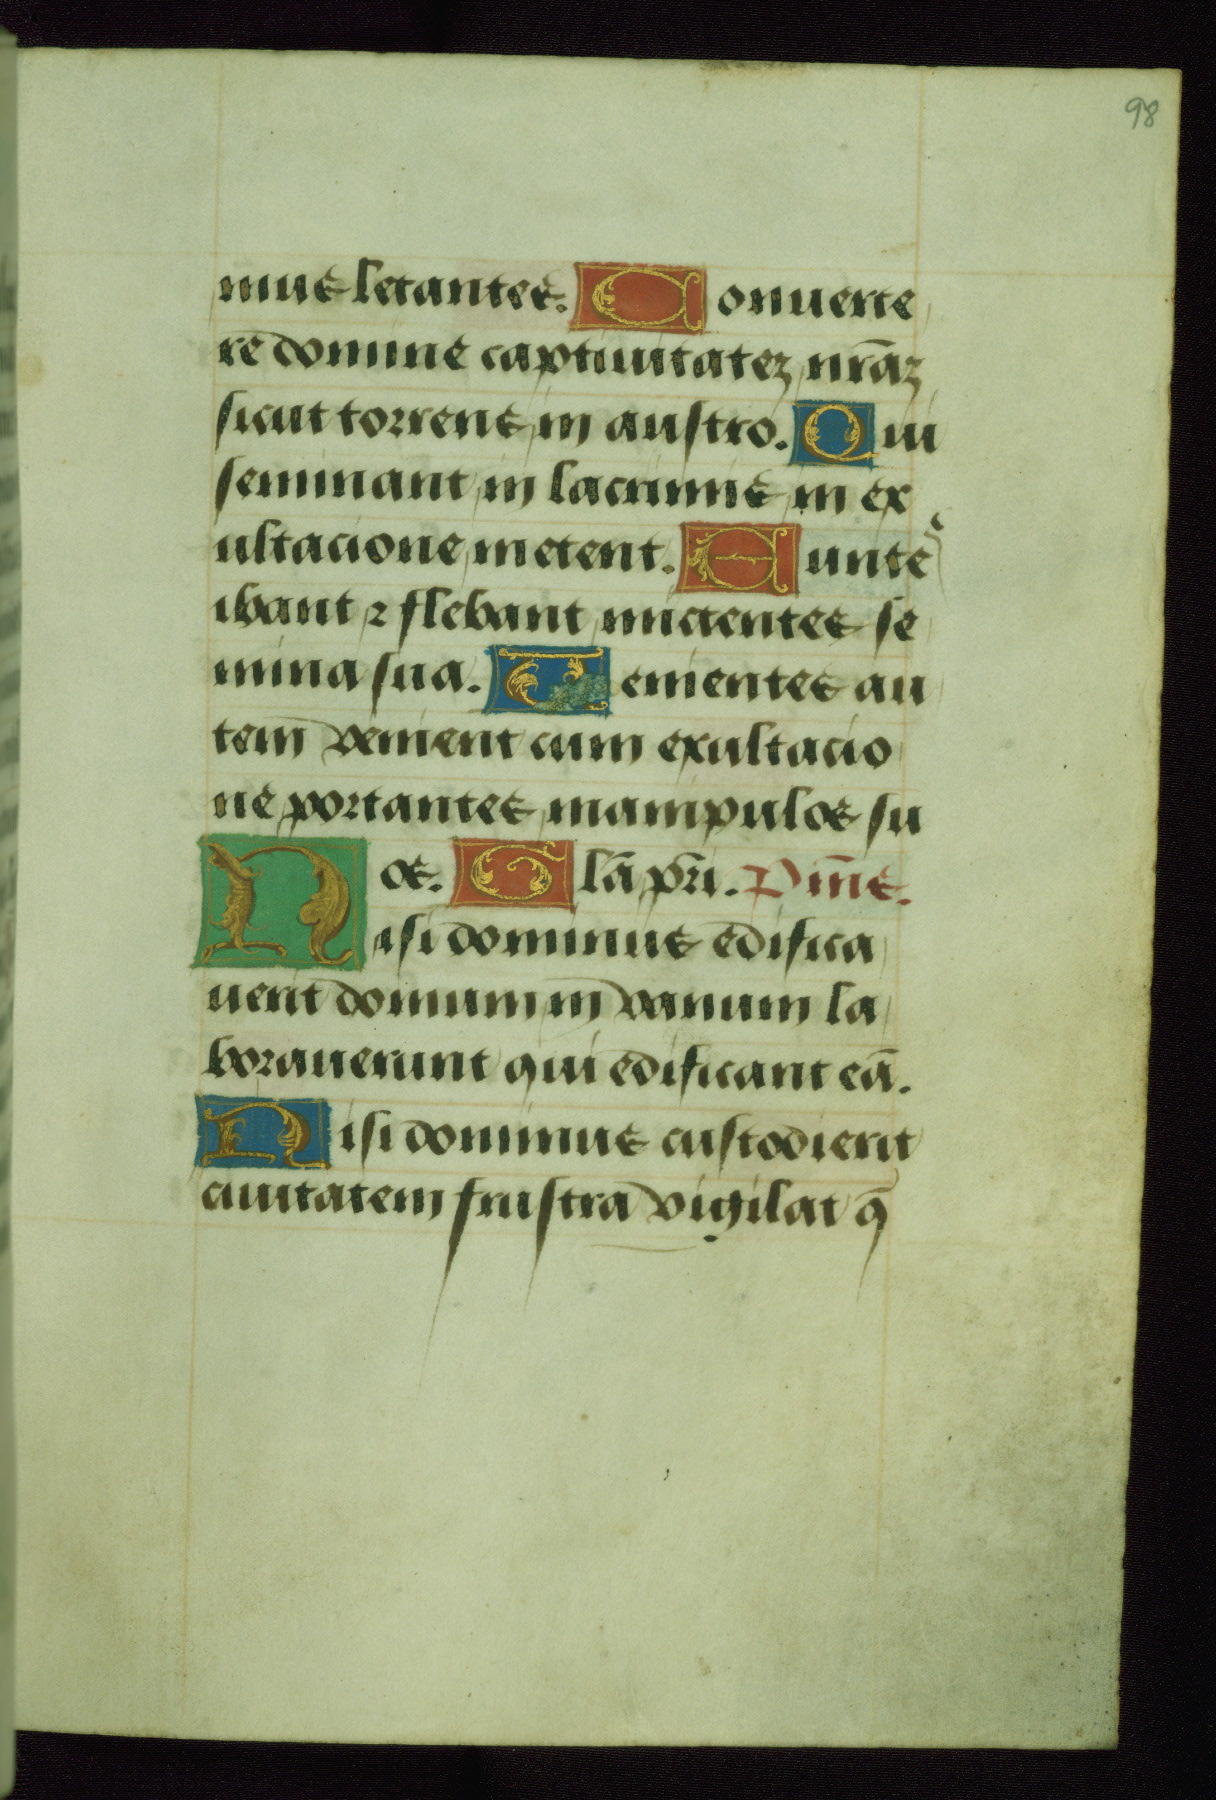 98
mus letantes. Conuerte
re domine captiuitatez nr̄az
sicut torrens in austro. Qui
seminant in lacrimis in ex
ultacione metent. Euntes
ibant ⁊ flebant mictentes se
mina sua. Uementes au
tem venient cum exultacio
ne portantes manipulos su
os. Glā pr̄i. Pım̄s.
Nisi dominus edifica
uerit domum in vanum la
borauerunt qui edificant eā.
Nisi dominus custodierit
ciuitatem frustra vigilat q̄